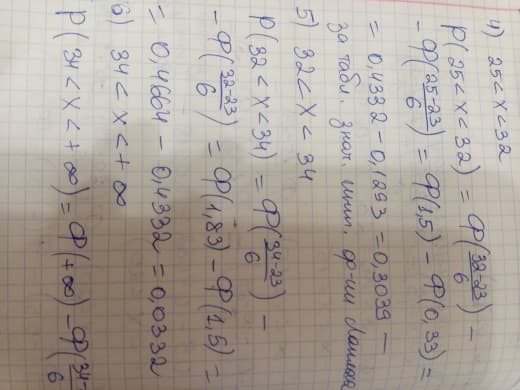 4) 25 < x < 32
P(25 < x < 32) = Ф(32-23/6) -
- Ф(25-23/6) = Ф(1,5) - Ф(0,33) =
= 0,4332 - 0,1293 = 0,3039 -
за табл. знач. інт. ф-ии Лапласа
5) 32 < x < 34
P(32 < x < 34) = Ф(34-23/6) -
- Ф(32-23/6) = Ф(1,83) - Ф(1,5) =
= 0,4664 - 0,4332 = 0,0332
6) 34 < x < + ∞
P(34 < x < + ∞) = Ф(+∞) - Ф(34-/6